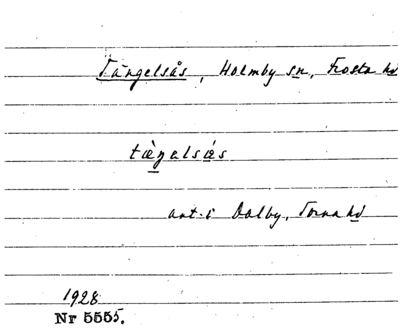 Tängelsås, Holmby sn, Frosta hd
tæŋelsås
ant. i Dalby, Torna hd
1928
Nr 5555.